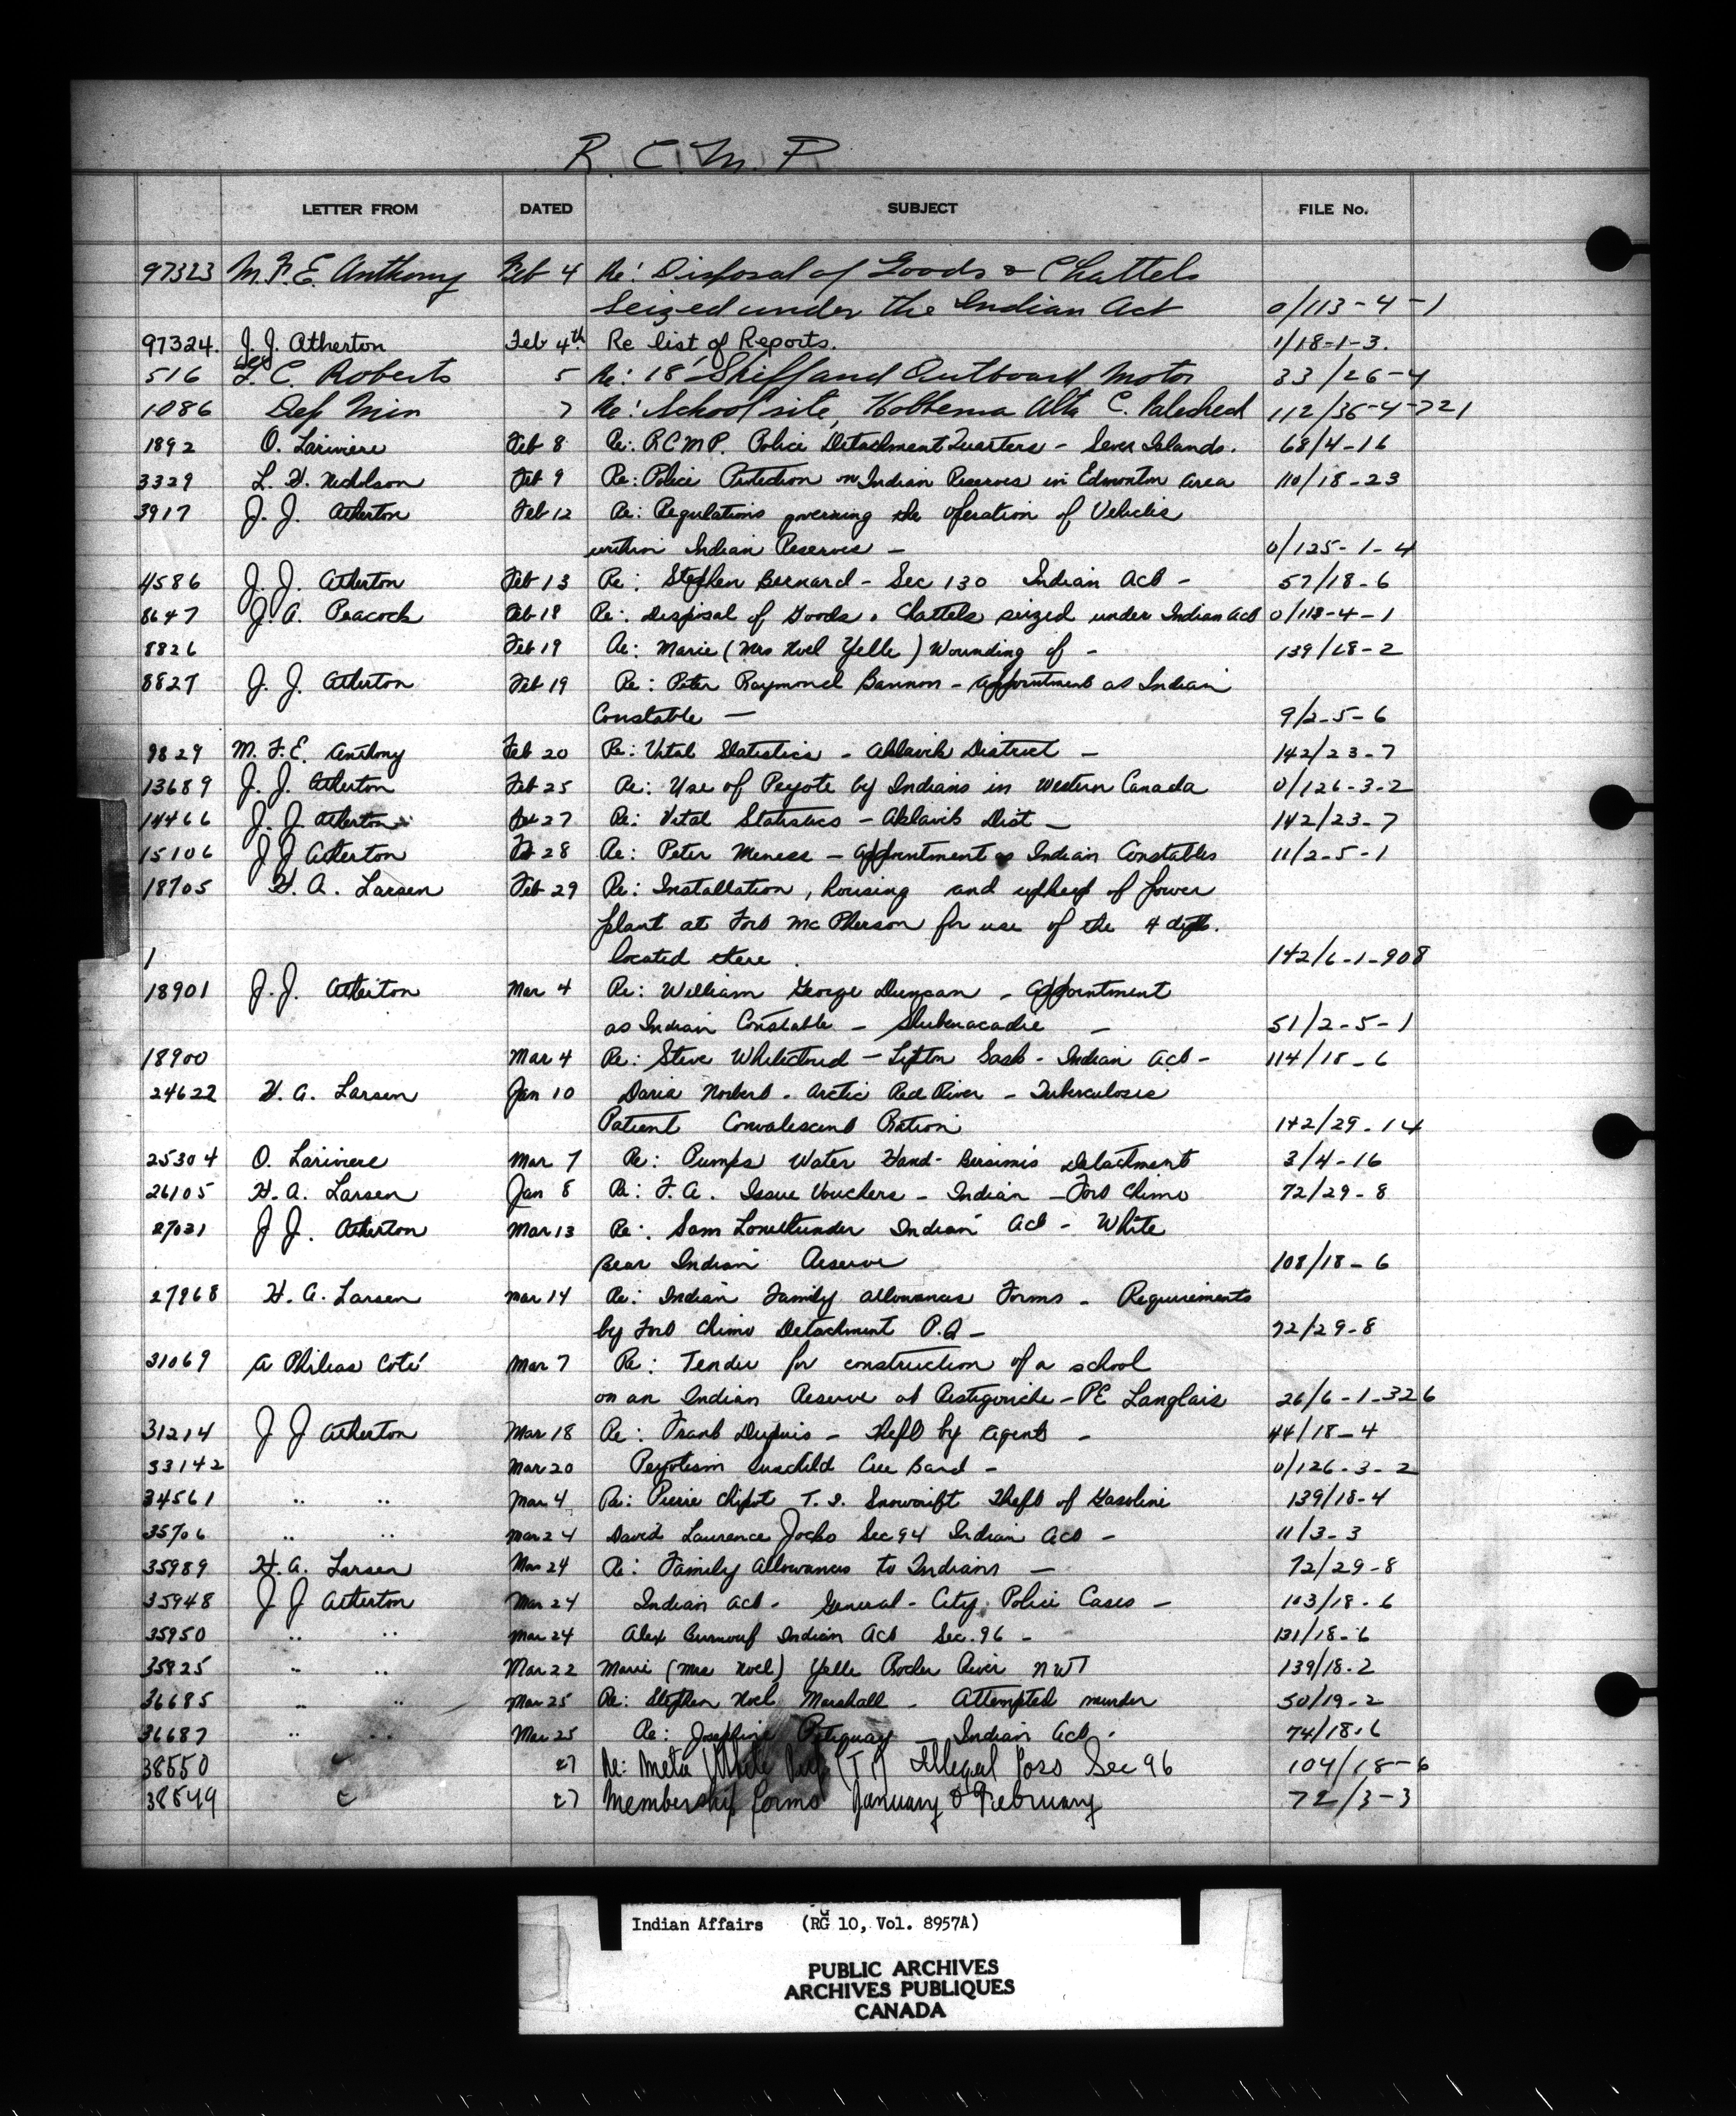 R. C. M. P
LETTER FROM DATED SUBJECT FILE No.
97323 M. F. E. Anthony Feb 4 Re: Disposal of Goods & Chattels
seized under the Indian Act 0/113-4-1
97324. J. J. Atherton Feb 4th Re list of Reports. 1/18-1-3.
516 C. Roberts 5 Re: 18' Skiff and Outboard Motor 33/26-4
1086 Dep Min 7 Re: School site, Hobbema Alta C. 112/36-4-721
1892 O. Lariviere Feb 8 Re: RCMP. Police Detachment Quarters - Seven Islands. 68/4-16
3329 L. H. Nicholson Feb 9 Re: Police Protection on Indian Reserves in Edmonton area 110/18-23
3917 J. J. Atherton Feb 12 Re: Regulations governing the operation of Vehicles
within Indian Reserves - 0/125-1-4
4586 J. J. Atherton Feb 13 Re: Stephen Bernard - Sec 130 Indian Act - 57/18-6
8647 J. A. Peacock Feb 18 Re: Disposal of Goods & Chattels seized under Indian Act 0/113-4-1
8826 Feb 19 Re: Marie (Mrs Noel Yelle) Wounding of - 139/18-2
8827 J. J. Atherton Feb 19 Re: Peter Raymond Bannon - appointment as Indian
Constable - 9/2-5-6
9829 M. F. E. Anthony Feb 20 Re: Vital Statistics - Aklavik District - 142/23-7
13689 J. J. Atherton Feb 25 Re: Use of Peyote by Indians in Western Canada 0/126-3-2
14466 J. J. Atherton Feb 27 Re: Vital Statistics - Aklavik Dist - 142/23-7
15106 J J Atherton Feb 28 Re: Peter Meness - appointment as Indian Constables 11/2-5-1
18705 H. A. Larsen Feb 29 Re: Installation, housing and upkeep of power
plant at Fort McPherson for use of the 4 depts.
1 located there. 142/6-1-908
18901 J. J. Atherton Mar 4 Re: William George Duncan - appointment
as Indian Constable - Shubenacadie - 51/2-5-1
18900 Mar 4 Re: Steve - Lipton Sask - Indian Act - 114/18-6
24622 H. A. Larsen Jan 10 Daria Norbert - Arctic Red River - Tuberculosis
Patient Convalescent Ration 142/29-14
25304 O. Lariviere Mar 7 Re: Pumps Water Hand - Bersimis Detachment 3/4-16
26105 H. A. Larsen Jan 8 Re: F. A. Issue Vouchers - Indian - Fort Chimo 72/29-8
27031 J J. Atherton Mar 13 Re: Sam Lonethunder Indian Act - White
Bear Indian Reserve 108/18-6
27968 H. A. Larsen Mar 14 Re: Indian Family allowances Forms - Requirements
by Fort Chimo Detachment P.Q - 72/29-8
31069 A Phileas Coté Mar 7 Re: Tender for construction of a school
on an Indian Reserve at Restigouche - PE Langlais 26/6-1-326
31214 J J Atherton Mar 18 Re: Frank Dupuis - Theft by Agent - 44/18-4
33142 Mar 20 Peyotism Sunchild Cree Band - 0/126-3-2
34561 " " Mar 4 Re: Pierre Chipot T. I. Snowdrift Theft of Gasoline 139/18-4
35706 " " Mar 24 David Laurence Jocko Sec 94 Indian Act - 11/3-3
35989 H. A. Larsen Mar 24 Re: Family Allowances to Indians - 72/29-8
35948 J J Atherton Mar 24 Indian Act - General - City Police Cases - 103/18-6
35950 " " Mar 24 Alex Burnouf Indian Act Sec. 96 - 131/18-6
35825 " " Mar 22 Marie (Mrs Noel) Yelle River NWT 139/18-2
36685 " " Mar 25 Re: Stephen Noel Marshall - Attempted murder 50/19-2
36687 " " Mar 25 Re: Josephine Petiquay - Indian Act. 74/18-6
38550 " 27 Re: White (T I) Illegal Poss Sec 96 104/18-6
38549 " 27 Membership forms January & February 72/3-3
Indian Affairs (RG 10, Vol. 8957A)
PUBLIC ARCHIVES
ARCHIVES PUBLIQUES
CANADA